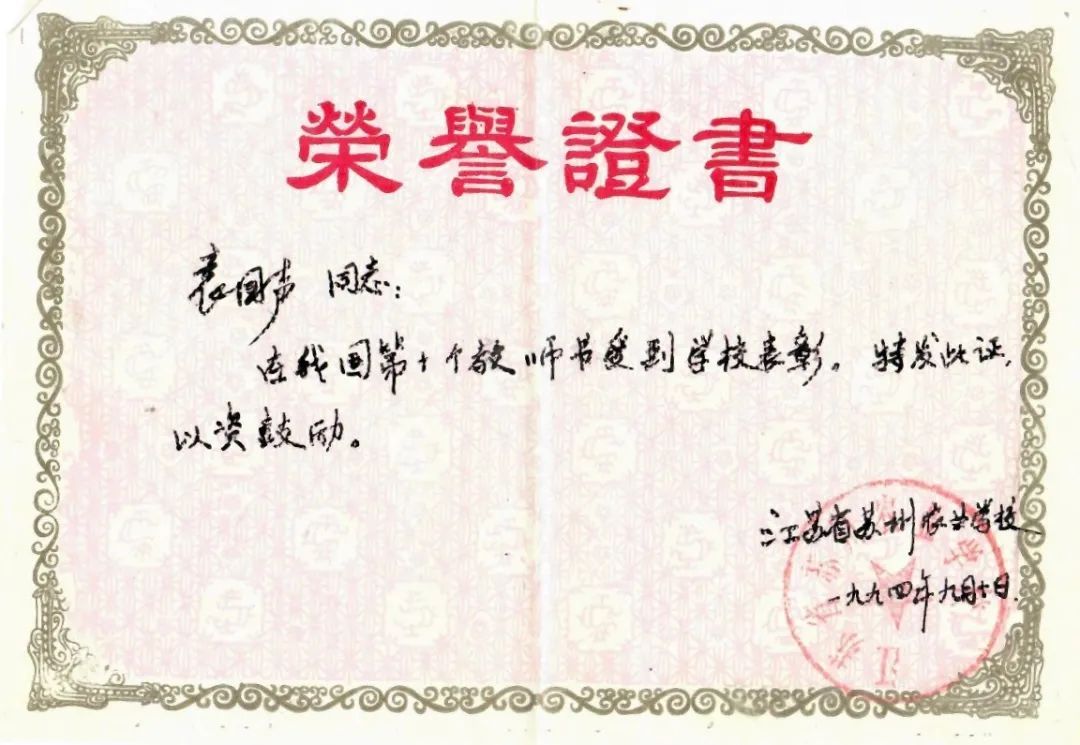 榮譽證書
袁国声 同志：
在我国第十个教师节受到学校表彰。特发此证，
以资鼓励。
江苏省苏州农业学校
一九九四年九月十日.